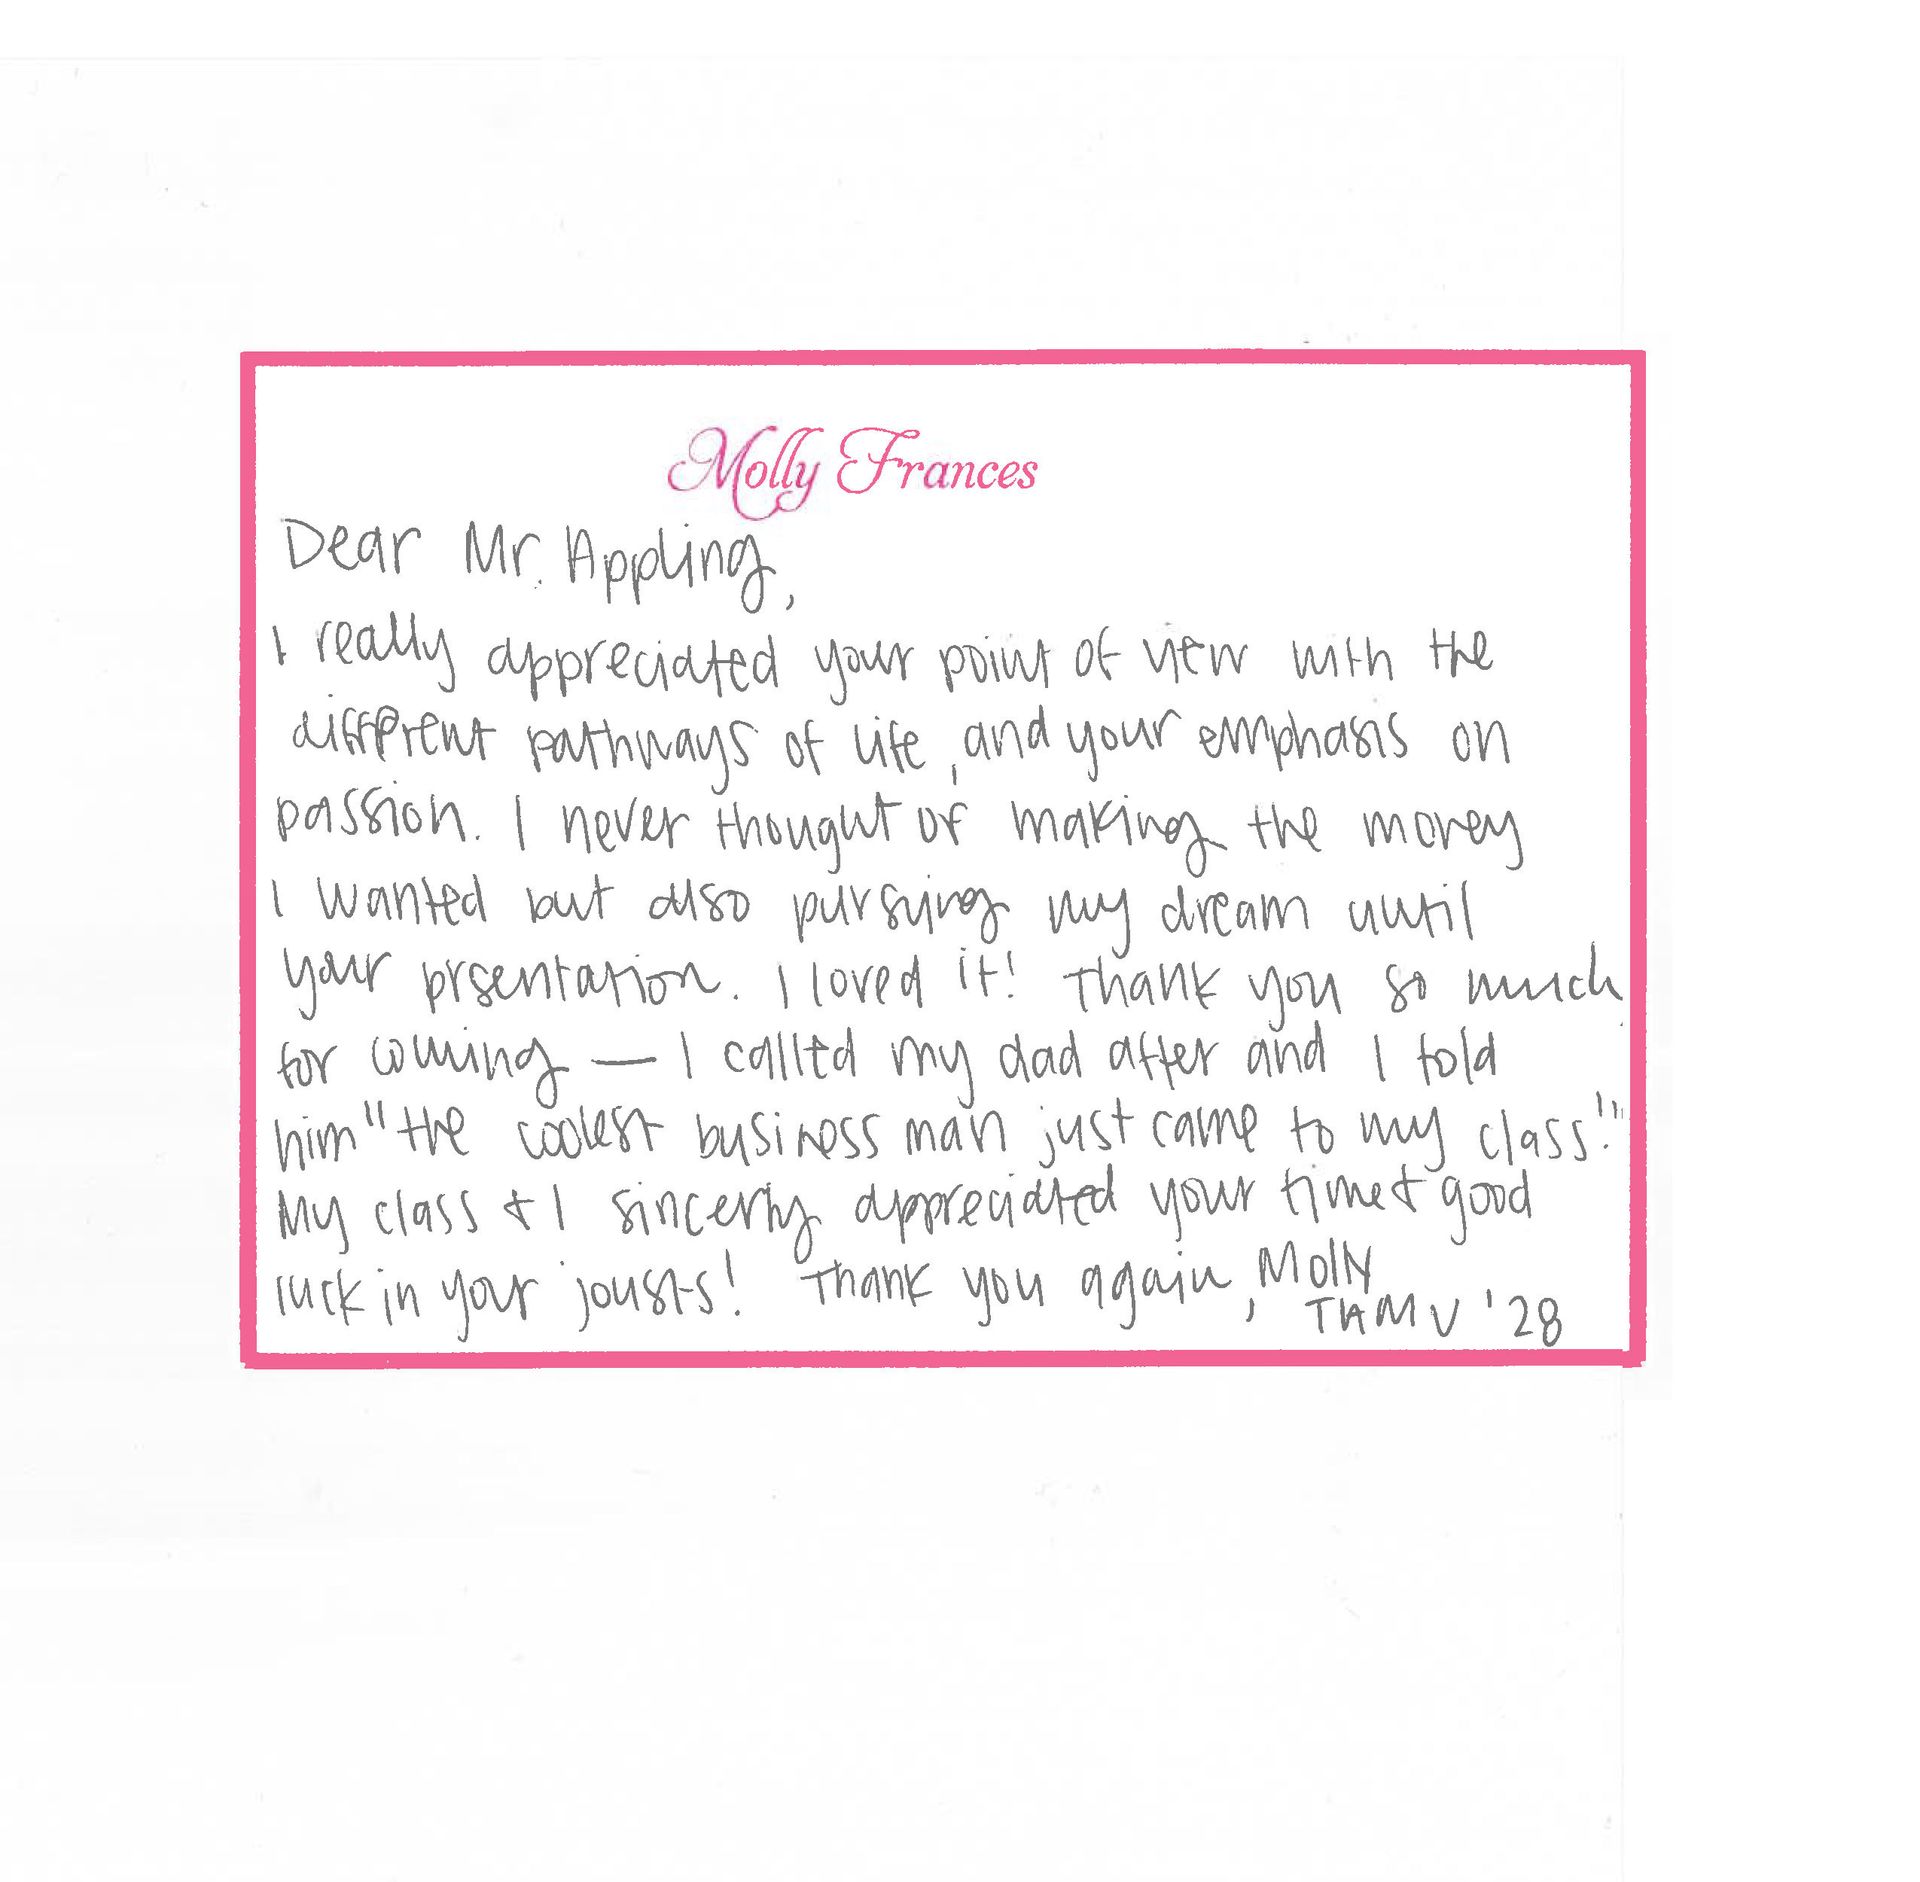 Molly Frances
Dear Mr. Appling,
I really appreciated your point of view with the
different pathways of life, and your emphasis on
passion. I never thought of making the money
I wanted but also pursying my dream until
your prsentation. I loved it! Thank you so much
for coming — I called my dad after and I told
him "the coolest business man just came to my class!"
My class & I sincerly appreciated your time & good
luck in your jousts! Thank you again, Molly
TAMU '28